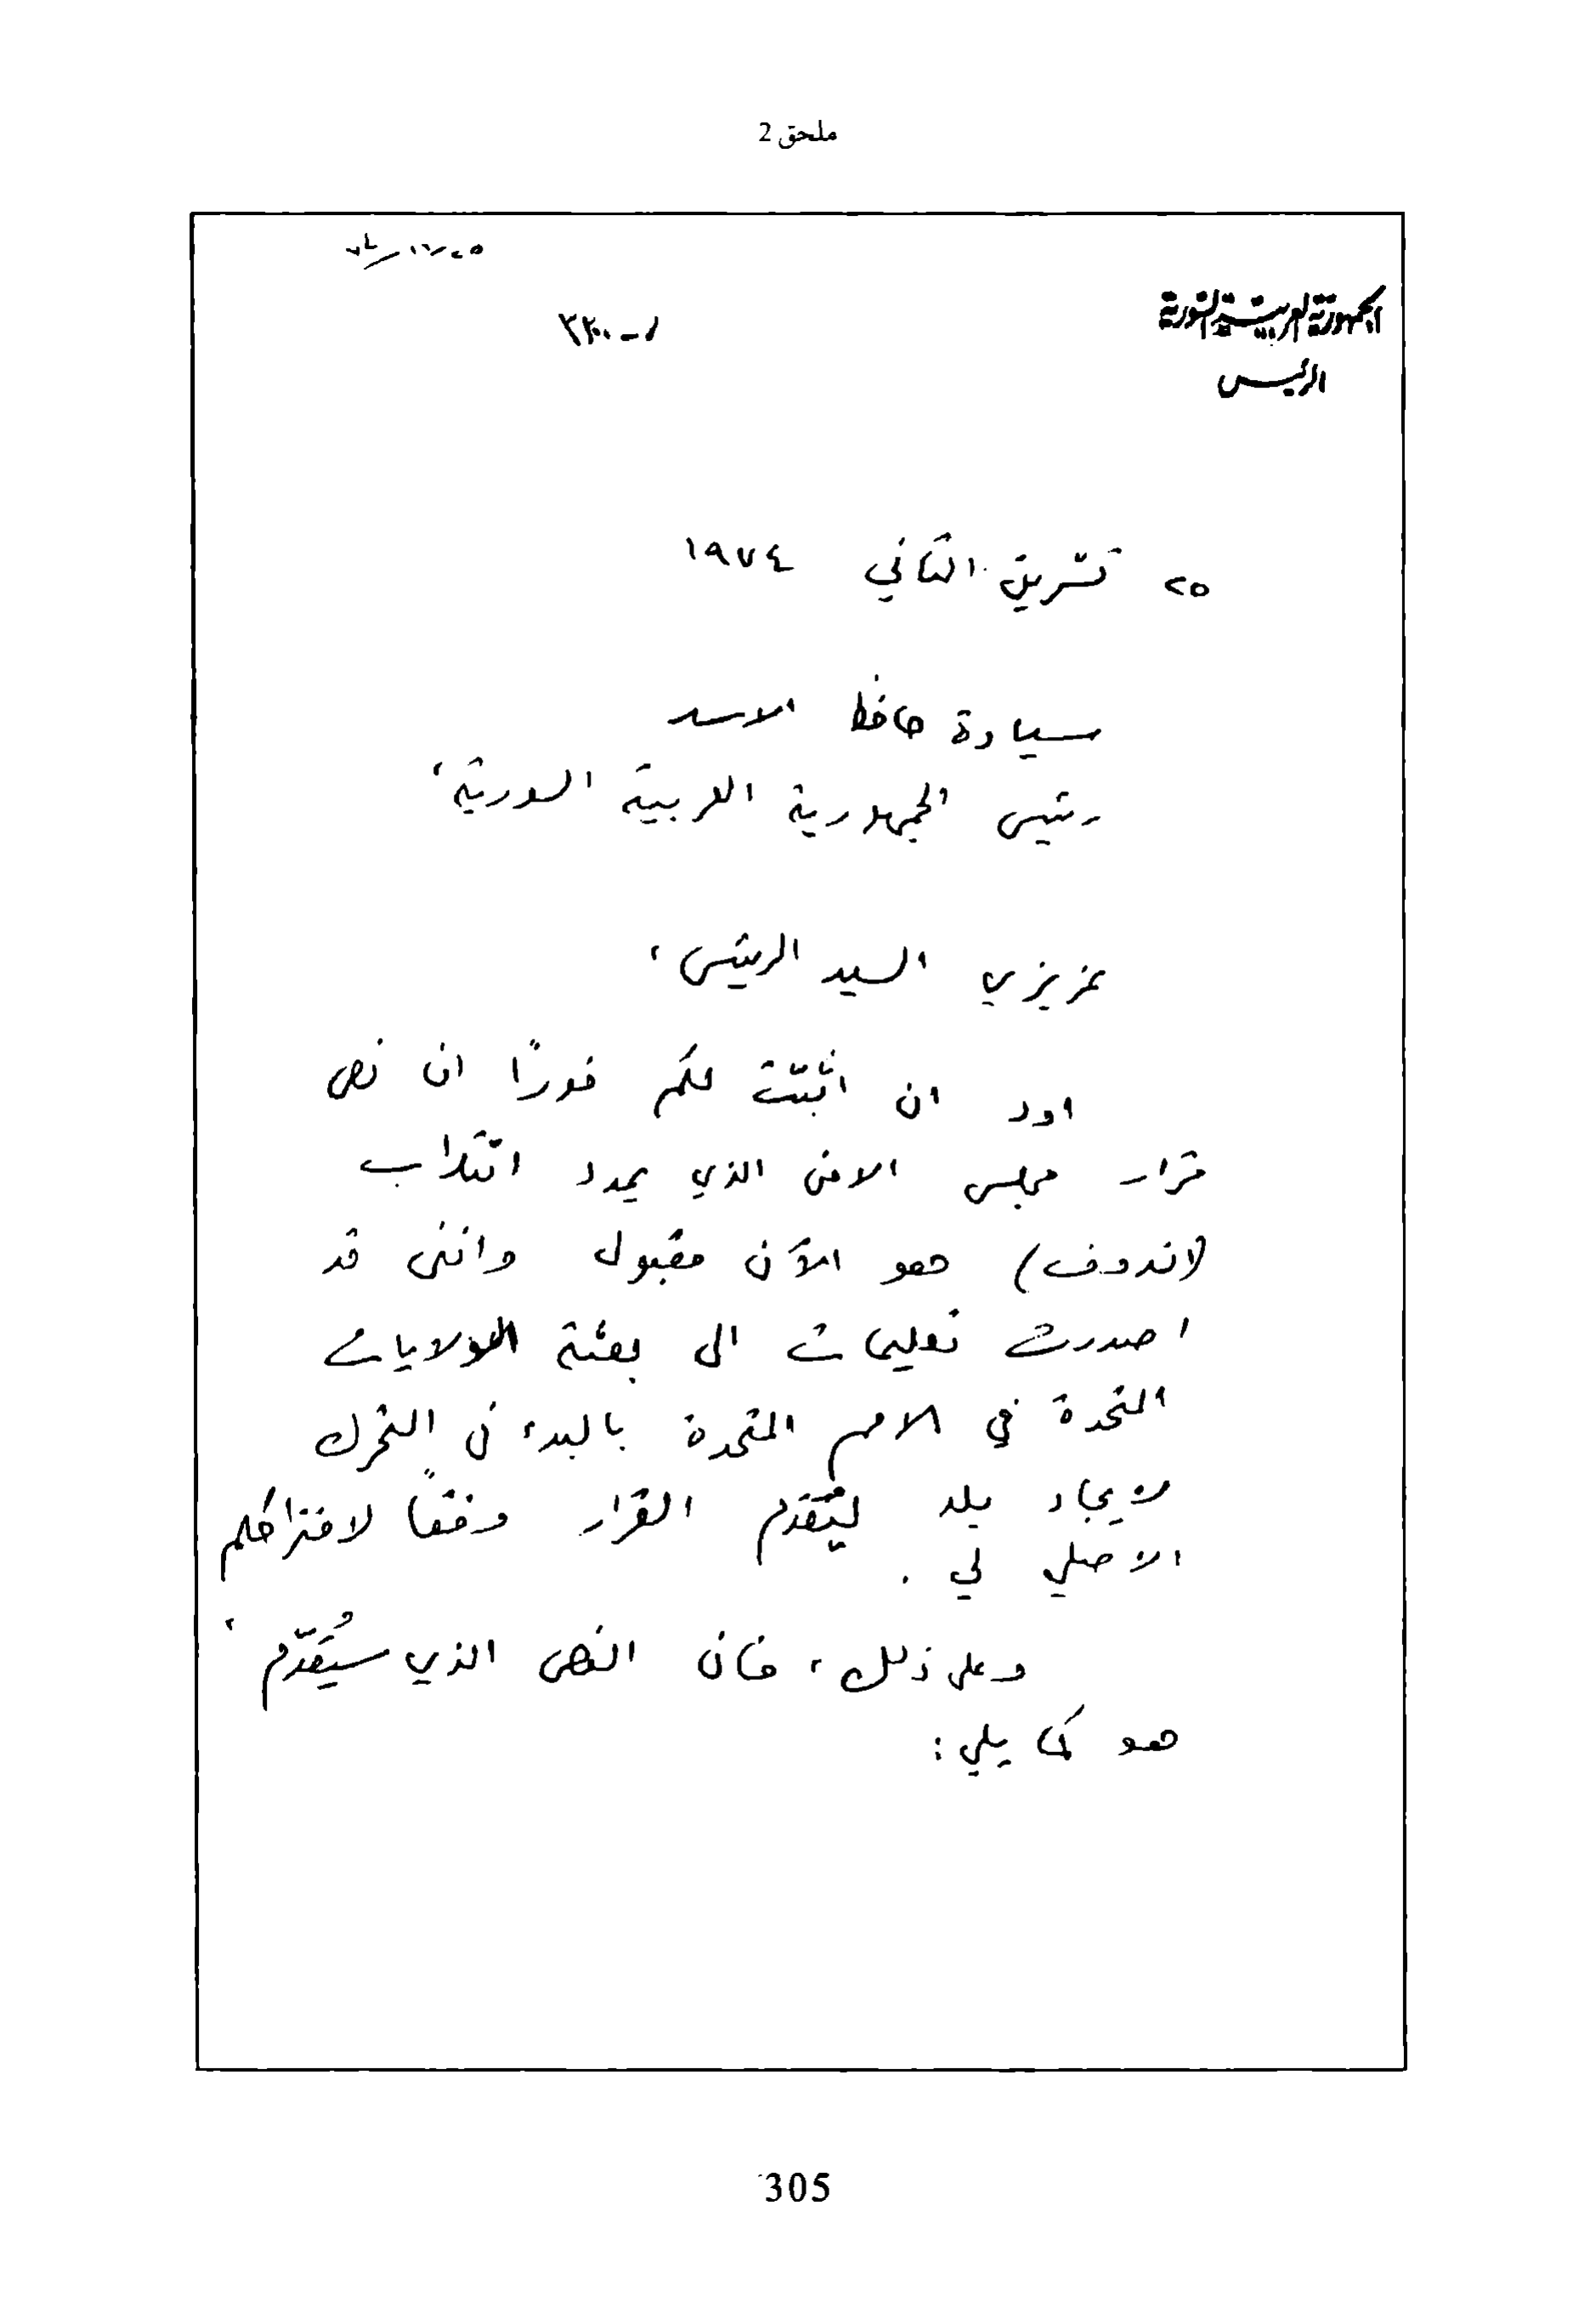 ملحق 2
الجمهورية العربية السورية
الرئيس
٢٥ تشرين الثاني ١٩٧٤
سيادة حافظ الاسد
رئيس الجمهورية العربية السورية،
عزيزي السيد الرئيس،
اود ان اثبّت لكم فوراً ان نص
قرار مجلس الامن الذي يمدد انتداب
(اندوف) هو الآن مقبول وانني قد
اصدرت تعليمات الى بعثة الولايات
المتحدة في الامم المتحدة بالبدء في التحرك
لايجاد بلد ليُقدم القرار وفقاً لاقتراحكم
الاصلي لي.
وعلى ذلك، فان النص الذي سيُقدّم،
هو كما يلي:
305